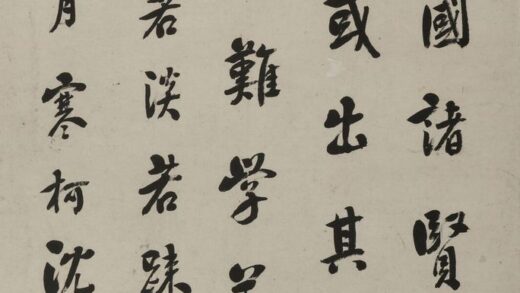 國諸賢
或出其
難学
若淡若疎
月寒柯沈